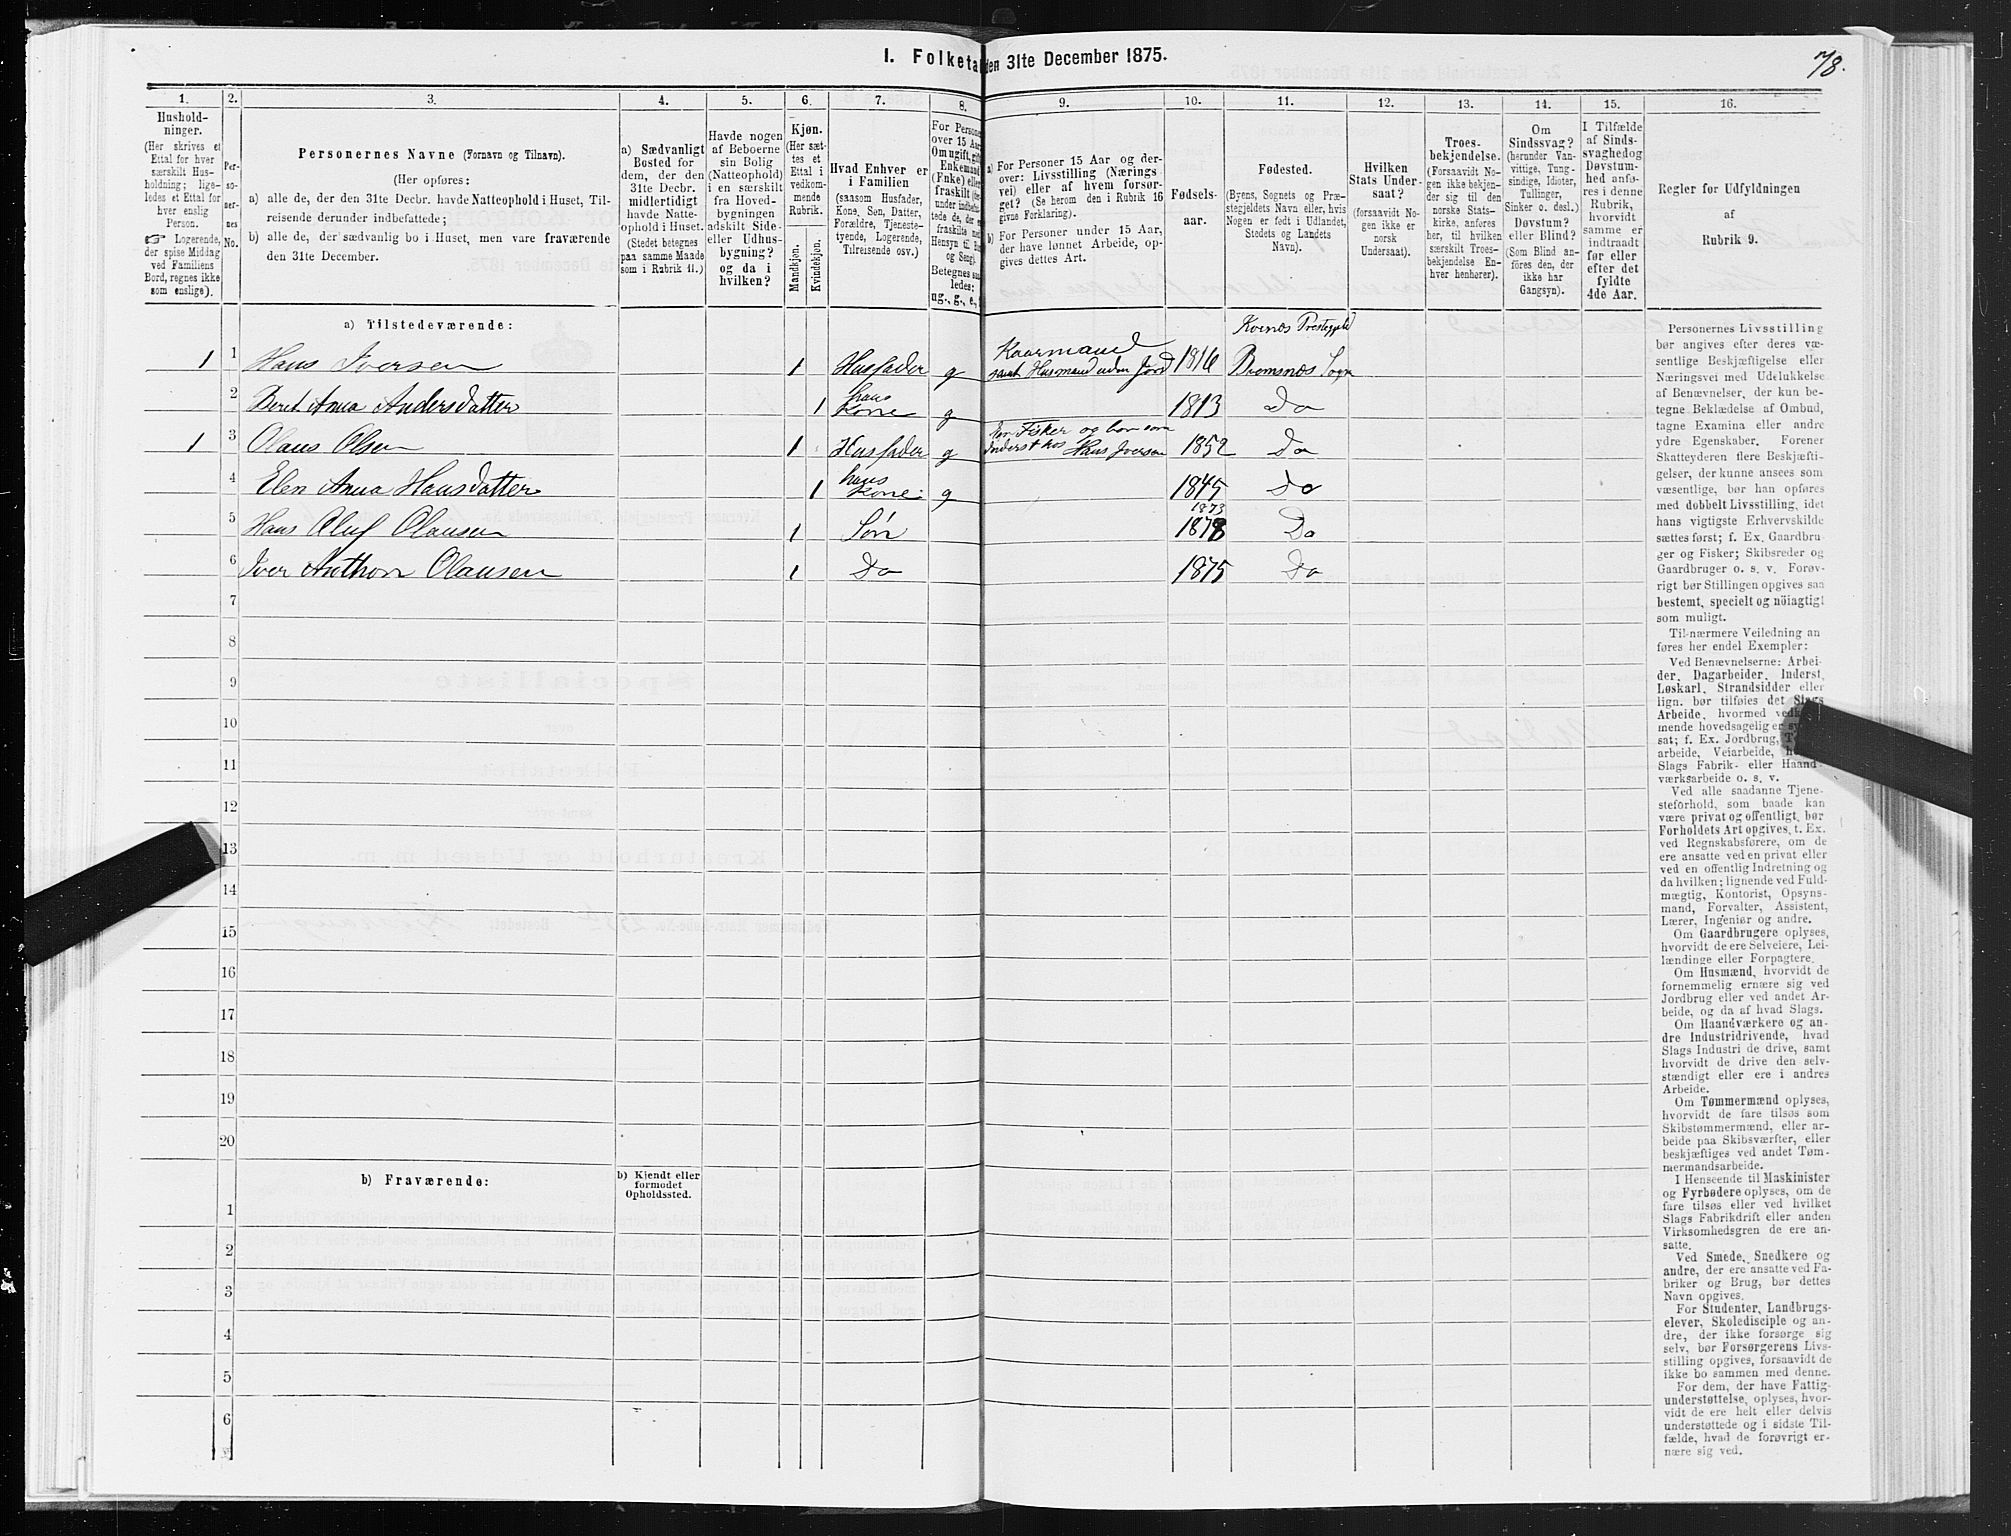 I. Folketal den 31te December 1875.
78.
1.
2.
3.
4.
5.
6.
7.
8.
9.
10.
11.
12.
13.
14.
15.
16.
Hushold-
ninger.
(Her skrives et
Ettal for hver
særskilt Hus-
holdning; lige-
ledes et Ettal for
hver enslig
Person.
☞ Logerende,
der spise Middag
ved Familiens
Bord, regnes ikke
som enslige).
Per-
so-
ner-
nes
No.
Personernes Navne (Fornavn og Tilnavn).
(Her opføres:
a) alle de, der den 31te Decbr. havde Natteophold i Huset, Til-
reisende derunder indbefattede;
b) alle de, der sædvanlig bo i Huset, men vare fraværende
den 31te December.
a) Sædvanligt
Bosted for
dem, der den
31te Decbr.
midlertidigt
havde Natte-
ophold i Huset.
(Stedet betegnes
paa samme Maade
som i Rubrik 11.)
Havde nogen
af Beboerne
sin Bolig
(Natteophold)
i en særskilt
fra Hoved-
bygningen
adskilt Side-
eller Udhus-
bygning?
og da i
hvilken?
Kjøn.
(Her sæt-
tes et
Ettal i
vedkom-
mende
Rubrik.
Mandkjøn.
Kvindekjøn.
Hvad Enhver er
i Familien
(saasom Husfader,
Kone, Søn, Datter,
Forældre, Tjeneste-
tyende, Logerende,
Tilreisende osv.)
For Persone
over 15 Aar
Om ugift, gift
Enkemand
(Enke) eller
fraskilt
Betegnes saa
ledes:
ug., g., e.,
a) For Personer 15 Aar og der-
over: Livsstilling (Nærings
vei) eller af hvem forsør-
get? (Se herom den i Rubrik 16
givne Forklaring).
b) For Personer under 15 Aar,
der have lønnet Arbeide, op-
gives dettes Art.
Fødsels-
aar.
Fødested.
(Byens, Sognets og Præ-
stegjeldets Navn eller, hvis
Nogen er født i Udlandet,
Stedets og Landets
Navn).
Hvilken
Stats Under-
saat?
(forsaavidt No-
gen ikke er
norsk
Undersaat).
Troes-
bekjendelse.
(Forsaavidt No-
gen ikke bekjen-
der sig til den
norske Stats-
kirke, anføres
her, til hvilken
særskilt Troes-
bekjendelse En-
hver henhører).
Om
Sindssvag?
(herunder Van-
vittige, Tung-
sindige, Idioter,
Tullinger,
Sinker o. desl.)
Døvstum?
eller Blind?
(Som Blind an-
føres den, der
ikke har
Gangsyn).
I Tilfælde
af Sinds-
svaghed og
Døvstum-
hed anfø-
res i denne
Rubrik,
hvorvidt
samme er
indtraadt
før eller
efter det
fyldte
4de Aar.
Regler for Udfyldningen
af
Rubrik 9.
a) Tilstedeværende:
Kvernes Prestegjeld
1 1 Hans Iversen 1 Husfader g Kaarmand samt Husmand uden Jord 1816 Bremsnes Sogn
2 Beret Anna Andersdatter 1 hans Kone g 1813 Do
1 3 Olaus Olsen 1 Husfader g Fisker og bor som Inderst hos Hans Iversen 1852 Do
4 Elen Anna Hansdatter 1 hans Kone g 1845 Do
1873
5 Hans Oluf Olausen 1 Søn 1873 Do
6 Iver Anthon Olausen 1 Do 1875 Do
7
8
9
10
11
12
13
14
15
16
17
18
19
20
b) Fraværende:
b) Kjendt eller
formodet
Opholdssted.
1
2
3
4
5
6
Personernes Livsstilling
bør angives efter deres væ-
sentlige Beskjæftigelse eller
Næringsvei med Udelukkelse
af Benævnelser, der kun be-
tegne Beklædelse af Ombud,
tagne Examina eller andre
ydre Egenskaber. Forener
Skatteyderen flere Beskjæfti-
gelser, der kunne ansees som
væsentlige, bør han opføres
med dobbelt Livsstilling, idet
hans vigtigste Erhvervskilde
sættes først; f. Ex. Gaardbru-
ger og Fisker; Skibsreder og
Gaardbruger o. s. v. Forøv-
rigt bør Stillingen opgives saa
bestemt, specielt og nöiagtigt
som muligt.
Til nærmere Veiledning an
føres her endel Exempler:
Ved Benævnelserne: Arbei-
der, Dagarbeider, Inderst,
Løskarl, Strandsidder eller
lign. bør tilføies det Slags
Arbeide, hvormed vedkom-
mende hovedsagelig er sys
sat; f. Ex. Jordbrug,
arbeide, Veiarbeide,
Slags Fabrik- eller Haand-
værksarbeide o. s. v.
Ved alle saadanne Tjene-
steforhold, som baade kan
være privat og offentligt, bør
Forholdets Art opgives, t. Ex.
ved Regnskabsførere, om de
ere ansatte ved en privat eller
ved en offentlig Indretning og
da hvilken; lignende ved Fuld-
mægtig, Kontorist, Opsyns-
mand, Forvalter, Assistent,
Lærer, Ingeniør og andre.
Om Gaardbrugere oplyses,
hvorvidt de ere Selveiere, Lei-
lændinge eller Forpagtere.
Om Husmænd, hvorvidt de
fornemmelig ernære sig ved
Jordbrug eller ved andet Ar-
beide, og da af hvad Slags.
Om Haandværkere og an-
dre Industridrivende, hvad
Slags Industri de drive, samt
hvorvidt de drive den selv-
stændigt eller ere i andres
Arbeide.
Om Tømmermænd oplyses,
hvorvidt de fare tilsøs som
Skibstømmermænd, eller ar-
beide paa Skibsværfter, eller
beskjæftiges ved andet Tøm-
mermandsarbeide.
I Henseende til Maskinister
og Fyrbødere oplyses, om de
fare tilsøs eller ved hvilket
Slags Fabrikdrift eller anden
Virksomhedsgren de ere an-
satte.
Ved Smede, Snedkere og
andre, der ere ansatte ved Fa-
briker og Brug, bør dettes
Navn opgives.
For Studenter, Landbrugs-
elever, Skoledisciple og an-
dre, der ikke forsørge sig
selv, bør Forsørgerens Livs-
stilling opgives, forsaavidt de
ikke bo sammen med denne.
For dem, der have Fattig-
understøttelse, oplyses, hvor-
vidt de ere helt eller delvis
understøttede og i sidste Til-
fælde, hvad de forøvrigt er-
nære sig ved.